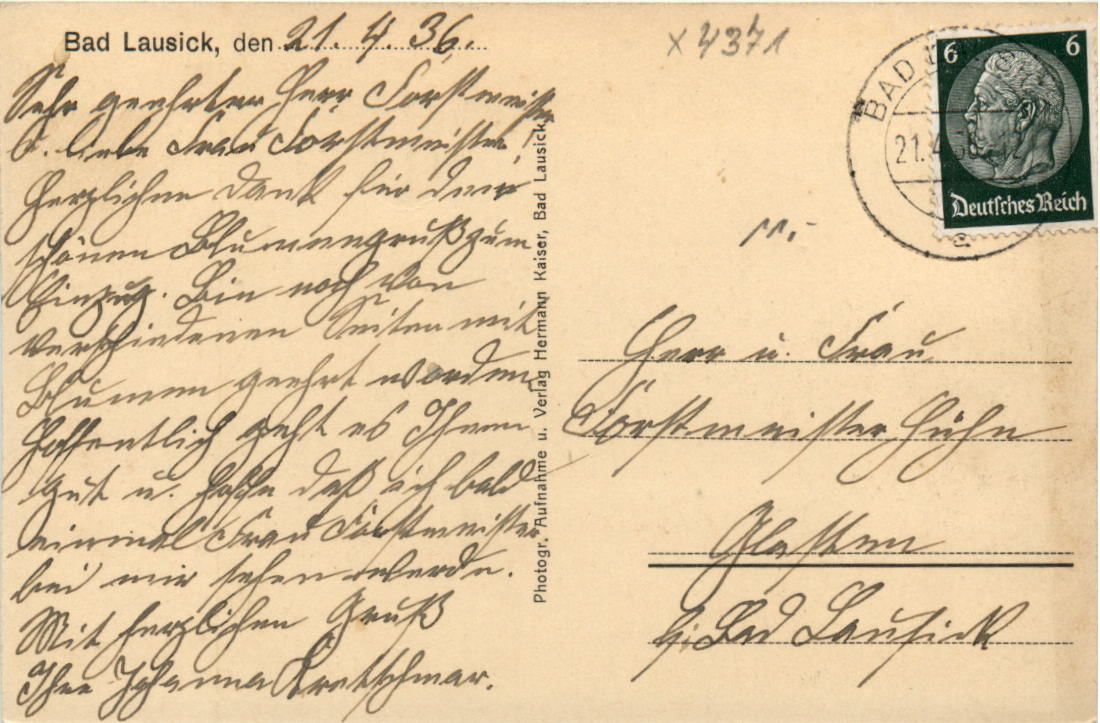 Bad Lausick, den 21.4.36.
Sehr geehrter Herr Forstmeister
u. liebe Frau Forstmeister!
Herzlichen Dank für den
schönen Blumengruß zum
Einzug. Bin noch von
verschiedenen Seiten mit
Blumen geehrt worden.
Hoffentlich geht es Ihnen
gut u. hoffe daß ich bald
einmal Frau Forstmeister
bei mir sehen werde.
Mit herzlichen Gruß
Ihre Johanna Kretschmar.
Photogr. Aufnahme u. Verlag Hermann Kaiser, Bad Lausick.
x 4371
BAD
21.4
a
6 6
Deutsches Reich
11.-
Herr u. Frau
Forstmeister Hühn
Glasten
b. Bad Lausick